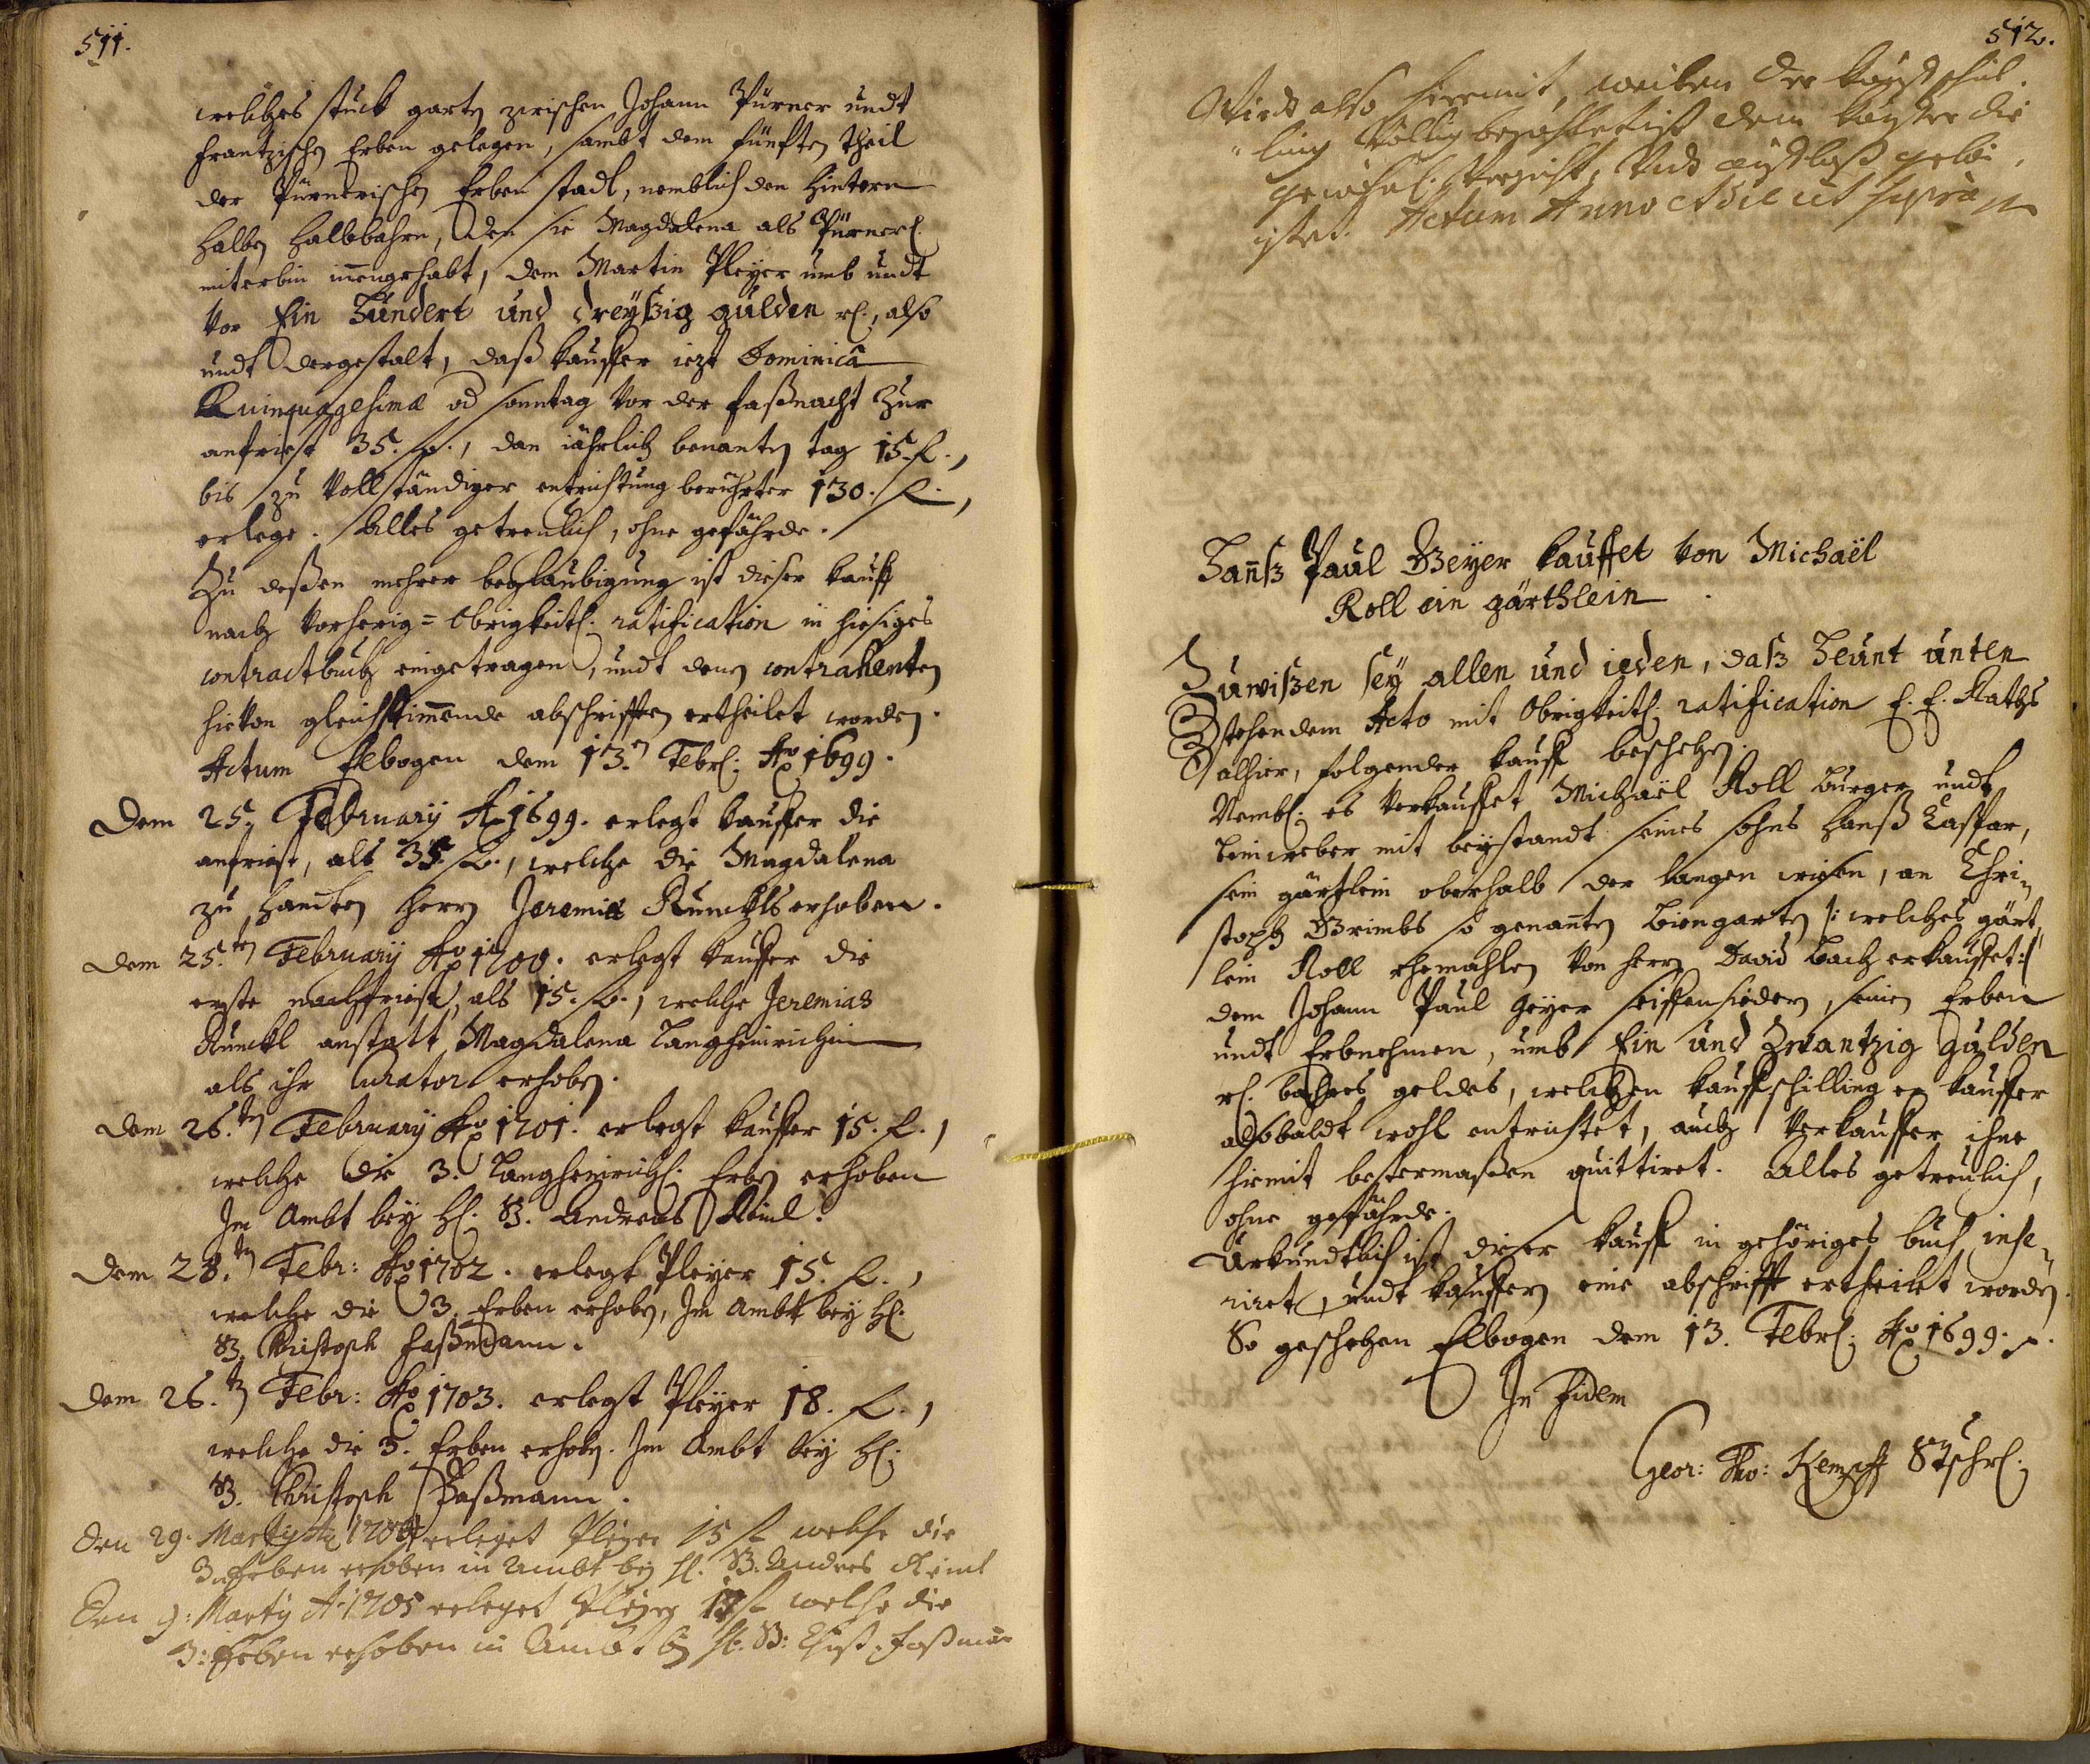 511.
welches stuck garten zwischen Johann Pürner undt
Frantzischen Erben gelegen, sambt dem fünfften theil
der Pürnerischen Erben stadl, nemblich den hintern
halben halbbahrn, den sie Magdalena als Pürnerl.
miterbin innengehabt, dem Martin Pleyer umb undt
vor Ein Hundert und dreyßig gulden rl., also
undt dergestalt, daß kauffer iezt Dominicâ
Quinquagesimâ od sonntag vor der faßnacht zur
anfrist 35. fl., dan iährlich benanten tag 15. fl.,
bis zu vollständiger entrichtung berührter 130. fl.,
erlege. Alles getreulich, ohne gefährde.
Zu deßen mehrer beglaubigung ist dieser kauff
nach vorherig= Obrigkeitl: ratification in hiesiges
contractbuch eingetragen, undt denen contrahenten
hievon gleichstimmende abschrifften ertheilet worden.
Actum Elbogen dem 13.n Febrl: Ao 1699.
Dem 25. February Ao 1699. erlegt kauffer die
anfrist, als 35. fl., welche die Magdalena
zu handen herrn Jeremias Runckls erhoben.
dem 25.ten February Ao 1700. erlegt kauffer die
erste nachfrist, als 15. fl., welche Jeremias
Runckl anstatt Magdalena Langheinrichin
als ihr Curator erhoben.
dem 26.ten February Ao 1701. erlegt kauffer 15. fl.,
welche die 3. Langheinrichl: Erben erhoben
Im Ambt bey hl: B. Andreas Reinl.
dem 28.ten Febr: Ao 1702. erlegt Pleyer 15. fl.,
welche die 3. Erben erhoben, Im Ambt bey hl:
B. Christoph Faßmann.
dem 26.ten Febr: Ao 1703. erlegt Pleyer 18. fl.,
welche die 3. Erben erhoben. Im Ambt bey hl:
B. Christoph Faßmann.
den 29. Marty Ao 1704 erleget Pleyer 15 fl welche die
3. Erben erhoben in Ambt bey hl. B. Andres Reinl
Den 9: Marty A. 1705 erleget Pleyer fl welche die
3: Erben erhoben in Ambt bey hl. B: Christ. Faßman
512.
Wird also hiermit, weilen der kauffschil
"ling völlig bezahlet ist dem kauffer die
gewöhnl. Verzicht, und außlaß gelei,
stet. Actum Anno et die ut supra
Hannß Paul Geyer kauffet von Michaël
Roll ein gärthlein
Zuwißen sey allen und ieden, daß Heunt unten
stehendem Acto mit Obrigkeitl: ratification E. E. Raths
alhier, folgender kauff beschehen.
Nembl: es verkauffet Michaël Roll burger undt
leinweber mit beystandt seines sohns Hanß Caspar,
sein gärtlein oberhalb der langen wisen, an Chri¬
stoph Grimbs so genanten biengarten /: welches gärt¬
lein Roll ehemahlen von herrn David Bach erkauffet :/
dem Johann Paul Geyer seiffensiedern, seinen Erben
undt Erbnehmen, umb Ein und Zwantzig Gulden
rl. bahres geldes, welchen kauffschilling er kauffer
alsobaldt wohl entrichtet, auch verkauffer ihne
hiemit bestermaßen quittiret. Alles getreulich,
ohne gefährde.
Urkundtlich ist dieser kauff in gehöriges buch inse¬
riret, undt kauffern eine abschrifft ertheilet worden.
So geschehen Elbogen dem 13. Febrl: Ao 1699.
In Fidem
Geor: Tho: Kempff Stschrl: